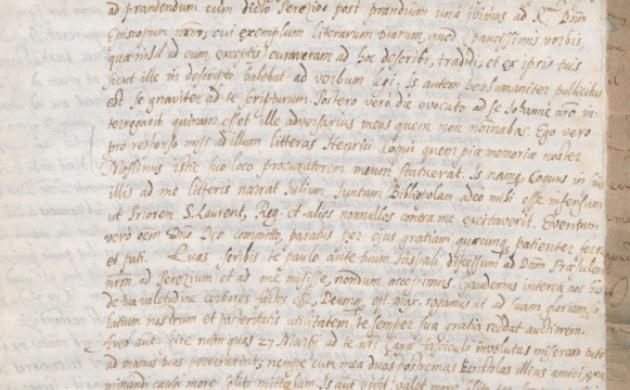 ad prandendum cum dicto Perezio: post prandium una ivimus ad R.mum Dnm
Episcopum nrm, cui exemplum literarum tuarum, quod paucissimis verbis,
quae nihil ad eum, exceptis curaveram ad hoc describi, tradidi, et ex ipsis tuis
sicut ille in descripto habebat ad verbum legi. Is autem perhumaniter pollicitus
est se graviter ad te scripturum. Postero vero die vocato ad se Johanne nro in-
terrogavit quisnam esset ille adversarius meus quem non nominabas. Ego vero
pro responso misi ad illum litteras Henrici Coquii quem piae memoriae noster
Moflinius istic suo loco procuratorem meum statuerat. Is namq Coquus in suis
illis ad me litteris narrat Julium Juntam Bibliopolam adeo mihi esse infensum
ut Priorem S. Laurent. Reg. et alios nonnullos contra me excitaverit. Eventum
vero oem Dno Deo committo, paratus per ejus gratiam quaecunq patienter ferre
et pati. Quas scribis te paulo ante tuum Hispali discessum ad Dnm Praesulem
nrm, ad Perezium et ad me misisse, nondum accepimus. Gaudemus interea nos
de tua valetudine certiores factos esse, Deumq opt. max. rogamus ut ad suam gloriam, so-
latium nostrum et posteritatis utilitatem te semper sua gratia reddat auctiorem.
Aveo autem scire num quas 27 Martij ad te nri fasciculo involutas miseram tuto
ad manus tuas pervenerint; nempe cum mea duas postremas Epistolas illius amici
more solito mittebam. Is aut vivit valet